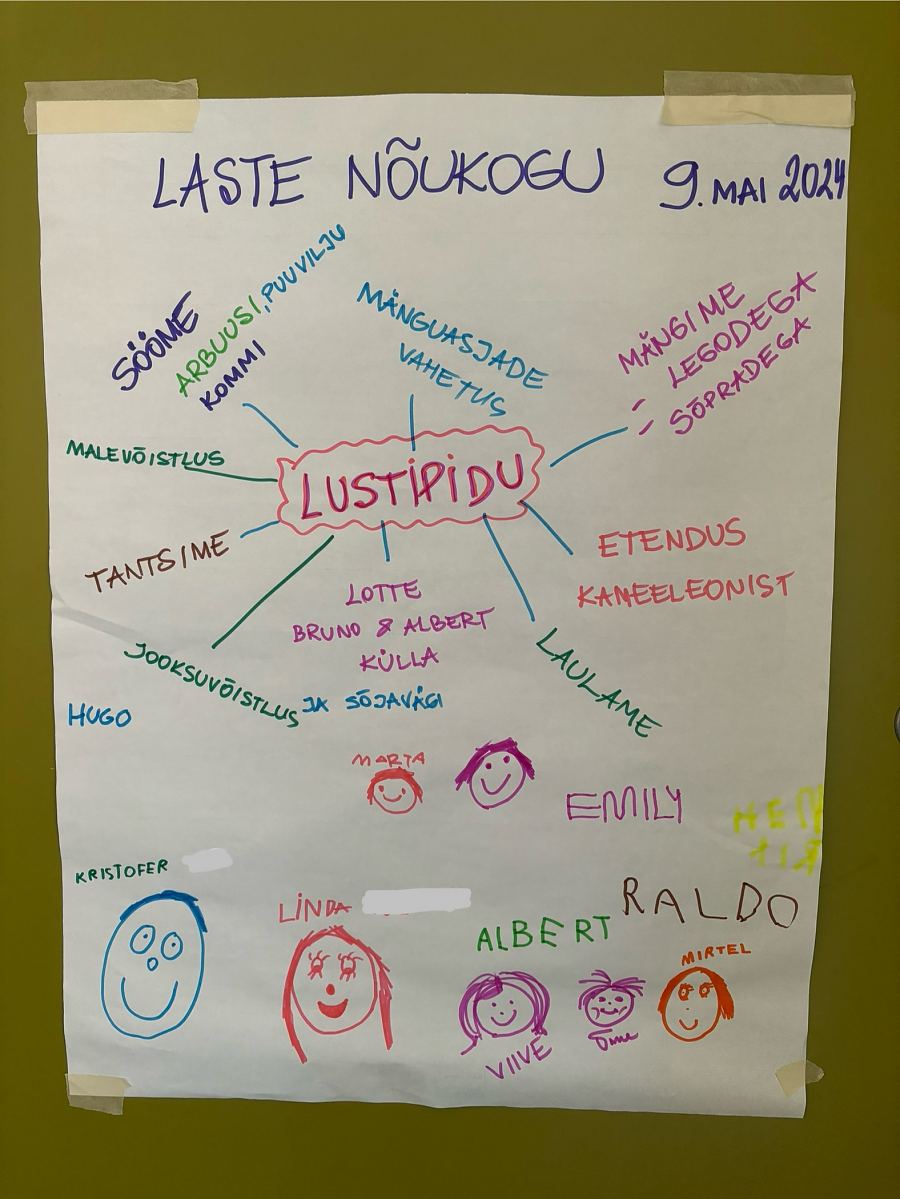 LASTE NÕUKOGU 9. MAI 2024
SÖÖME
ARBUUSI, PUUVILJU
KOMMI
MÄNGUASJADE
VAHETUS
MÄNGIME
- LEGODEGA
- SÕPRADEGA
MALEVÕISTLUS
LUSTIPIDU
TANTSIME
ETENDUS
KAMEELEONIST
LOTTE
BRUNO & ALBERT
KÜLLA
JA SÕJAVÄGI
JOOKSUVÕISTLUS
LAULAME
HUGO
MARTA
EMILY
KRISTOFER
LINDA
ALBERT
RALDO
MIRTEL
VIIVE